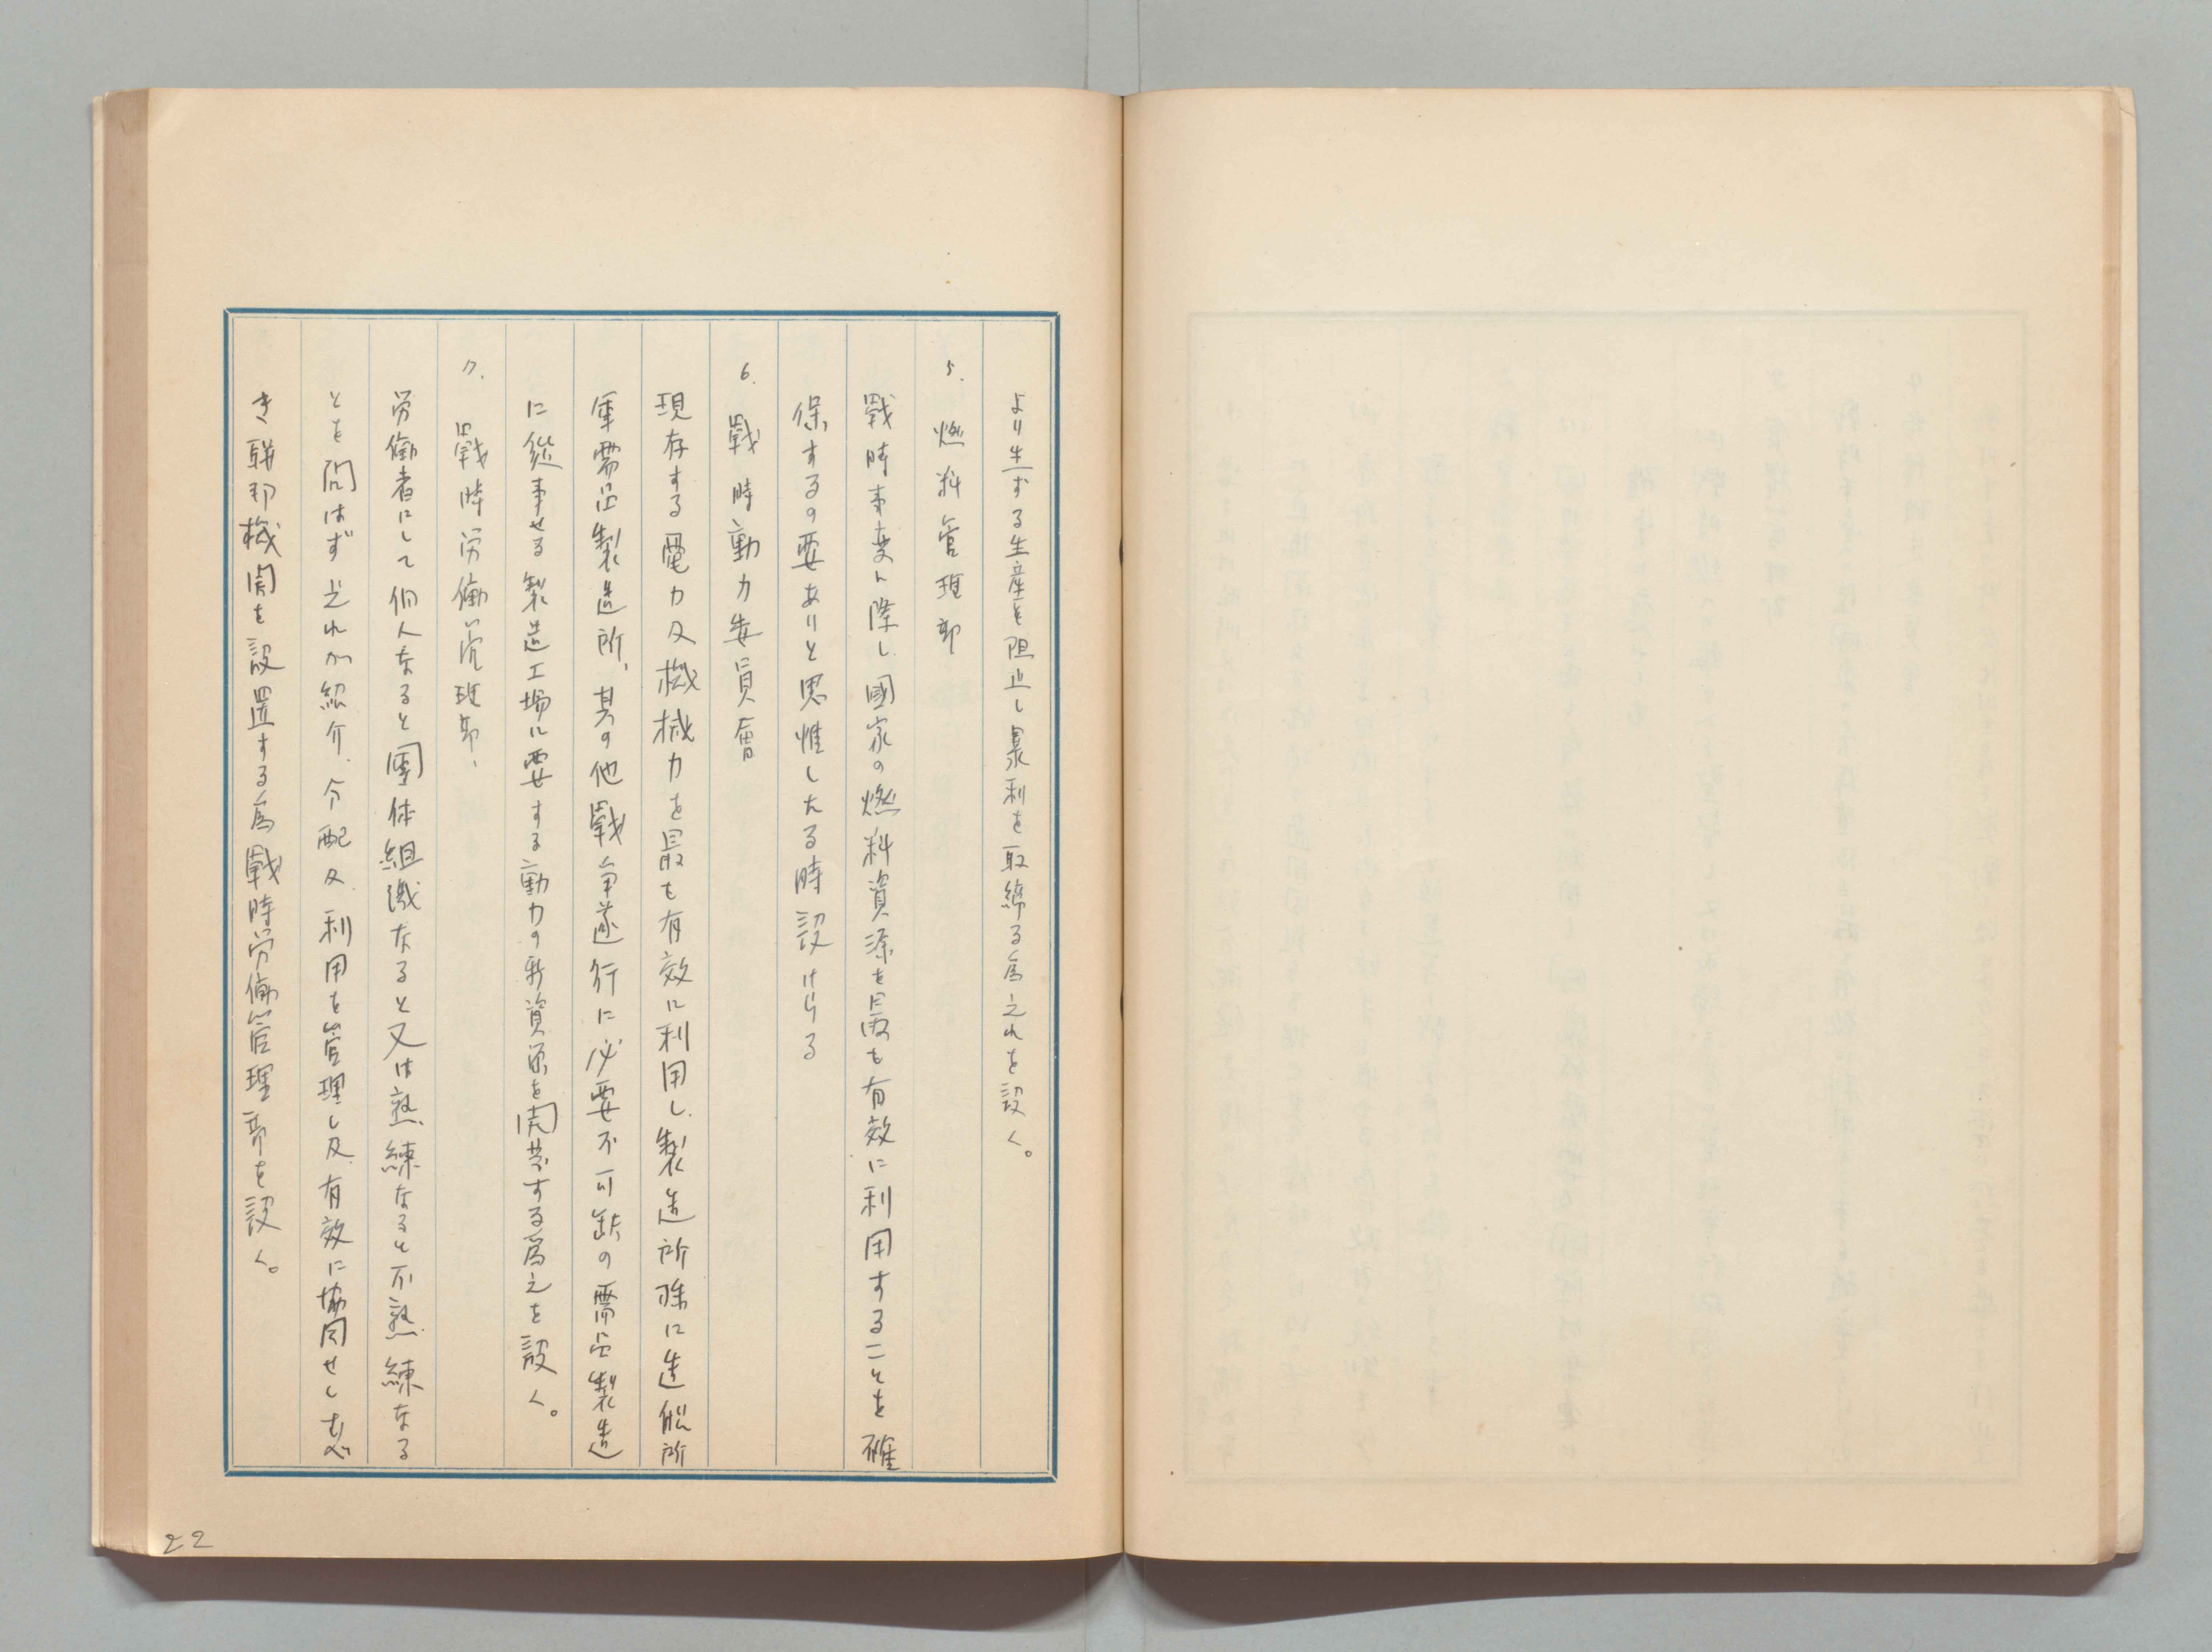 より生ずる生産を阻止し暴利を取締る為之れを設く。
5. 燃料管理部
戰時事変に際し國家の燃料資源を最も有效に利用することを確
保するの要ありと思惟したる時設けらる
6. 戰時動力委員會
現存する電力及機械力を最も有效に利用し、製造所殊に造船所
軍需品製造所、其の他戰争遂行に必要不可缺の需品製造
に從事せる製造工場に要する動力の新資源を開発する為之を設く。
7. 戰時労働管理部、
労働者にして個人なると團体組織なると又は熟練なると不熟練なる
とを問はず之れが紹介、分配及利用を管理し及有效に協同せしむべ
き聯邦機関を設置する為戰時労働管理部を設く。
22